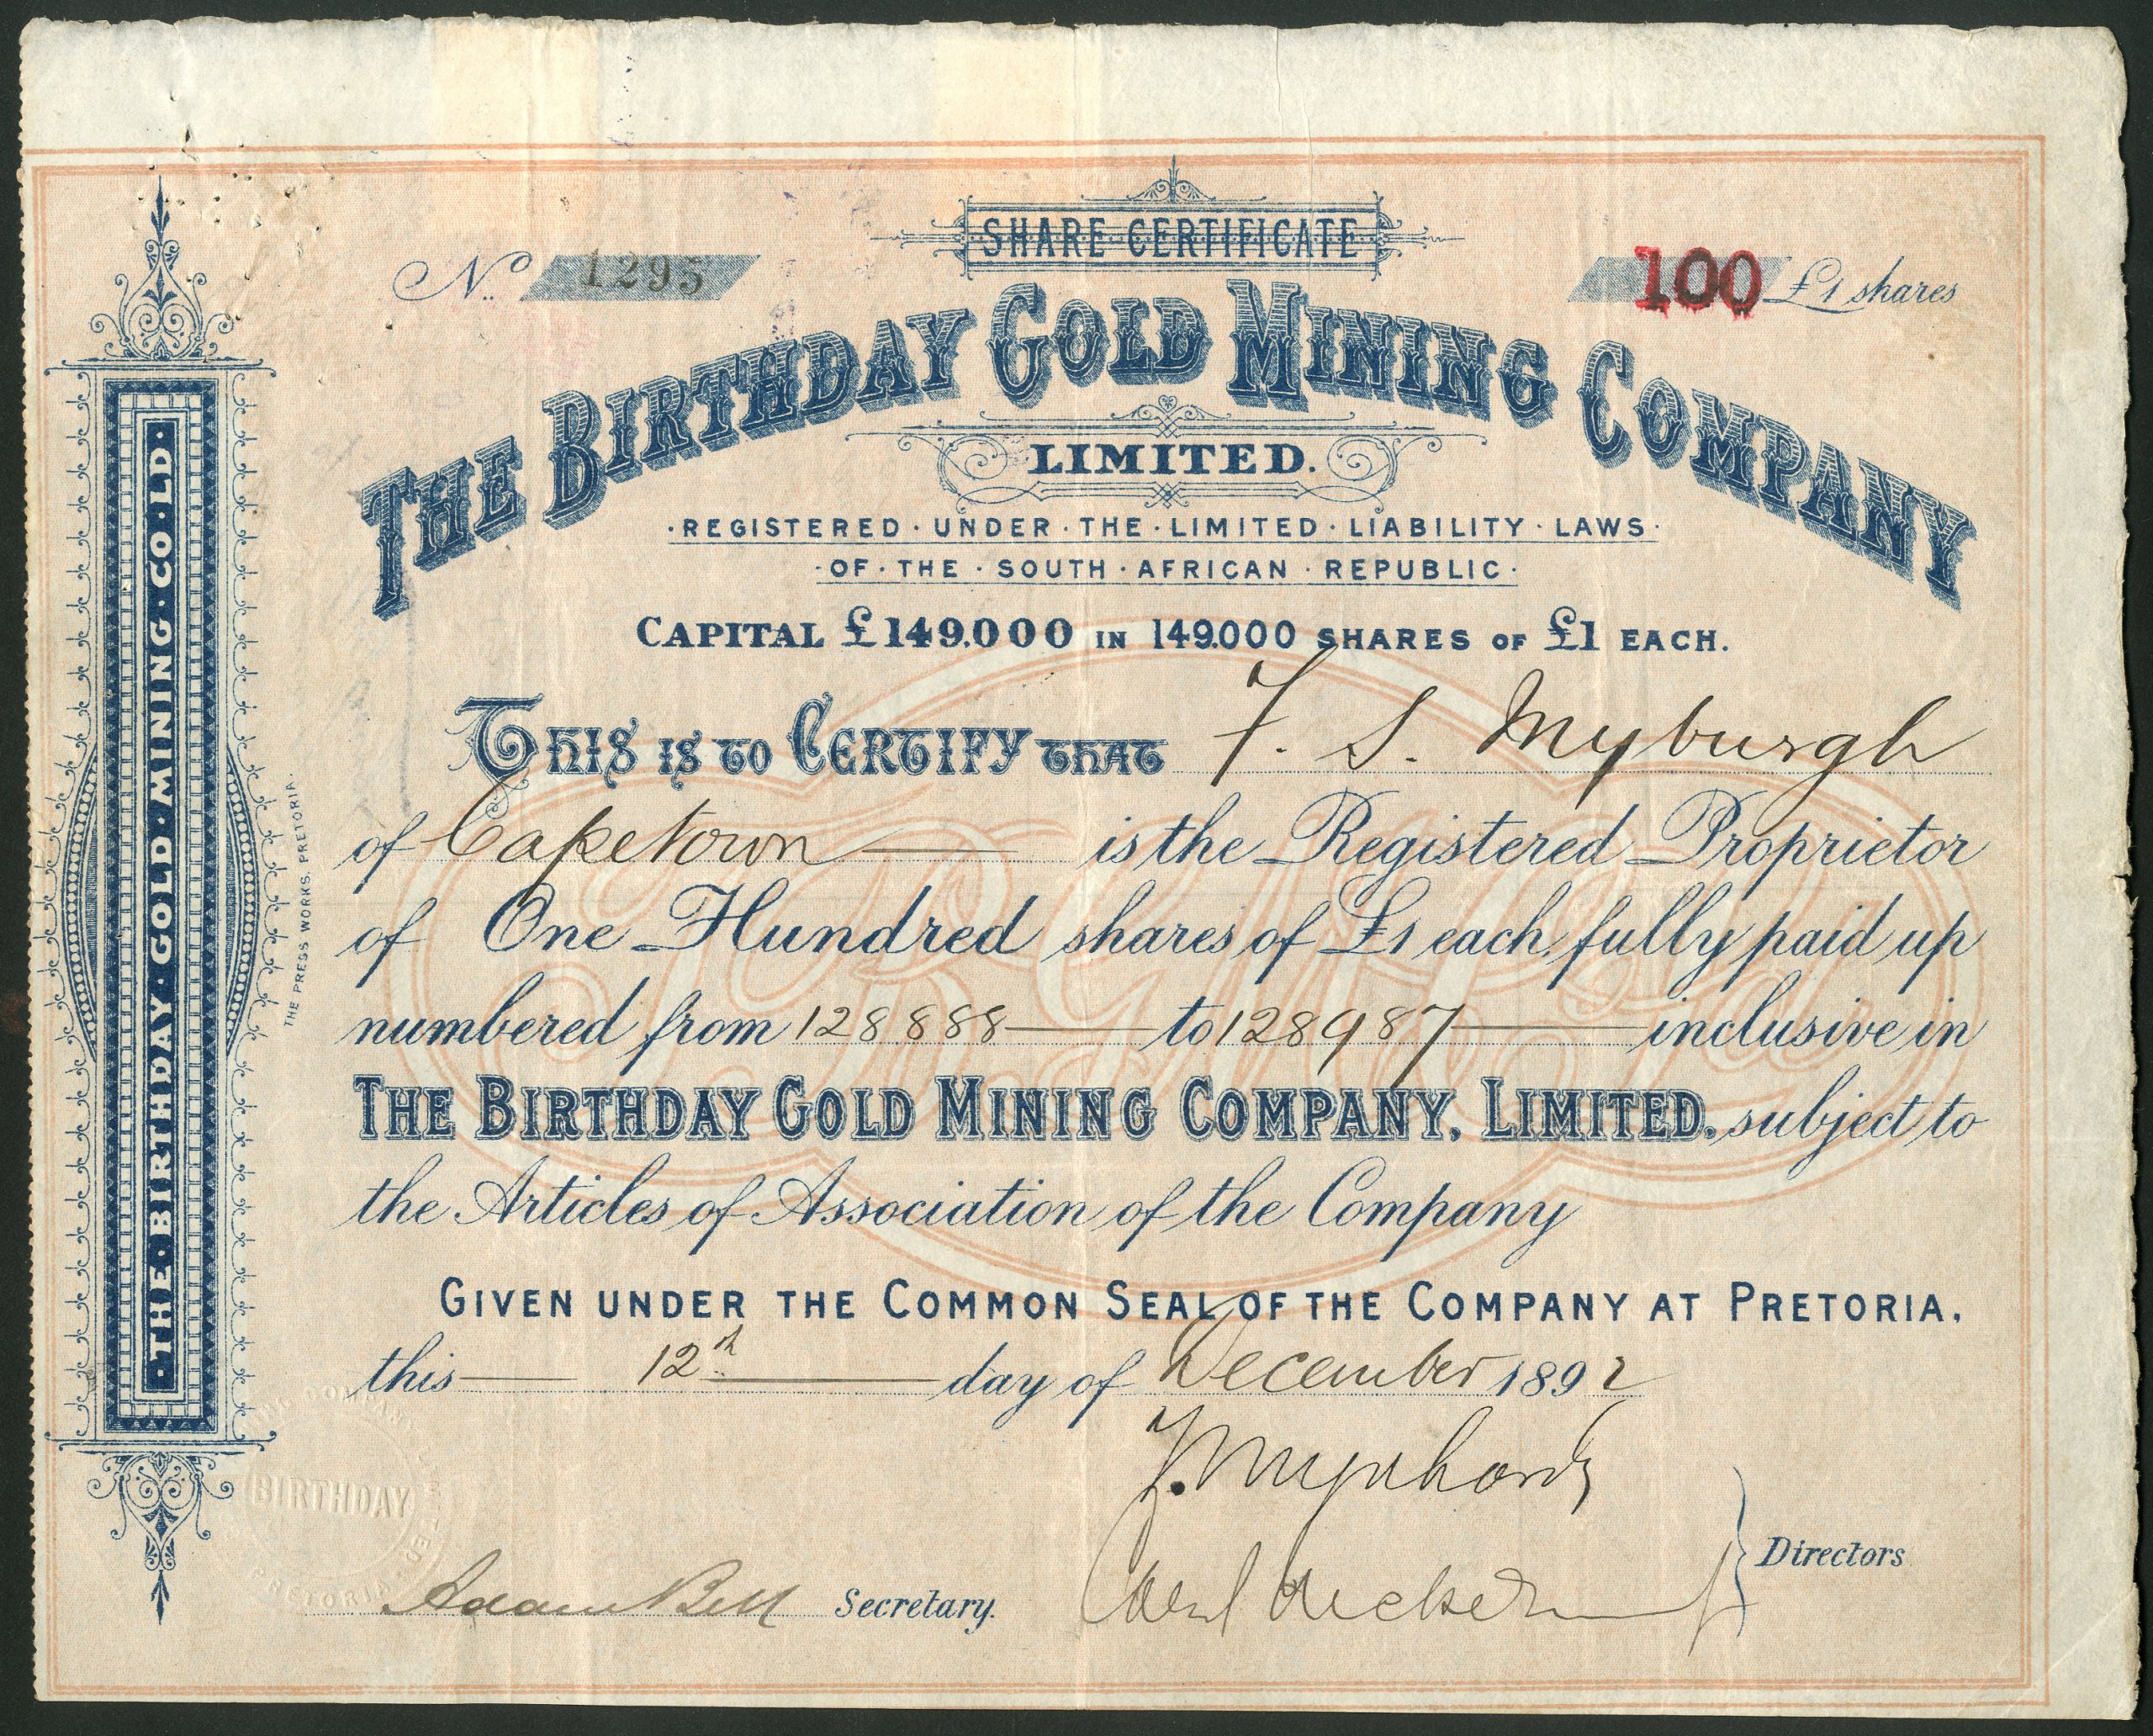 SHARE CERTIFICATE
No. 1295
100 £1 shares
THE BIRTHDAY GOLD MINING COMPANY
LIMITED.
·REGISTERED·UNDER·THE·LIMITED·LIABILITY·LAWS·
·OF·THE·SOUTH·AFRICAN·REPUBLIC·
CAPITAL £149.000 IN 149.000 SHARES OF £1 EACH.
THIS IS TO CERTIFY THAT F. S. Myburgh
of Capetown is the Registered Proprietor
of One Hundred shares of £1 each, fully paid up
numbered from 128888 to 128987 inclusive in
THE BIRTHDAY GOLD MINING COMPANY, LIMITED, subject to
the Articles of Association of the Company
GIVEN UNDER THE COMMON SEAL OF THE COMPANY AT PRETORIA,
this 12th day of December 1892
Directors
Adam Bell Secretary.
·THE·BIRTHDAY·GOLD·MINING·CO·LD·
THE PRESS WORKS. PRETORIA.
BIRTHDAY
PRETORIA